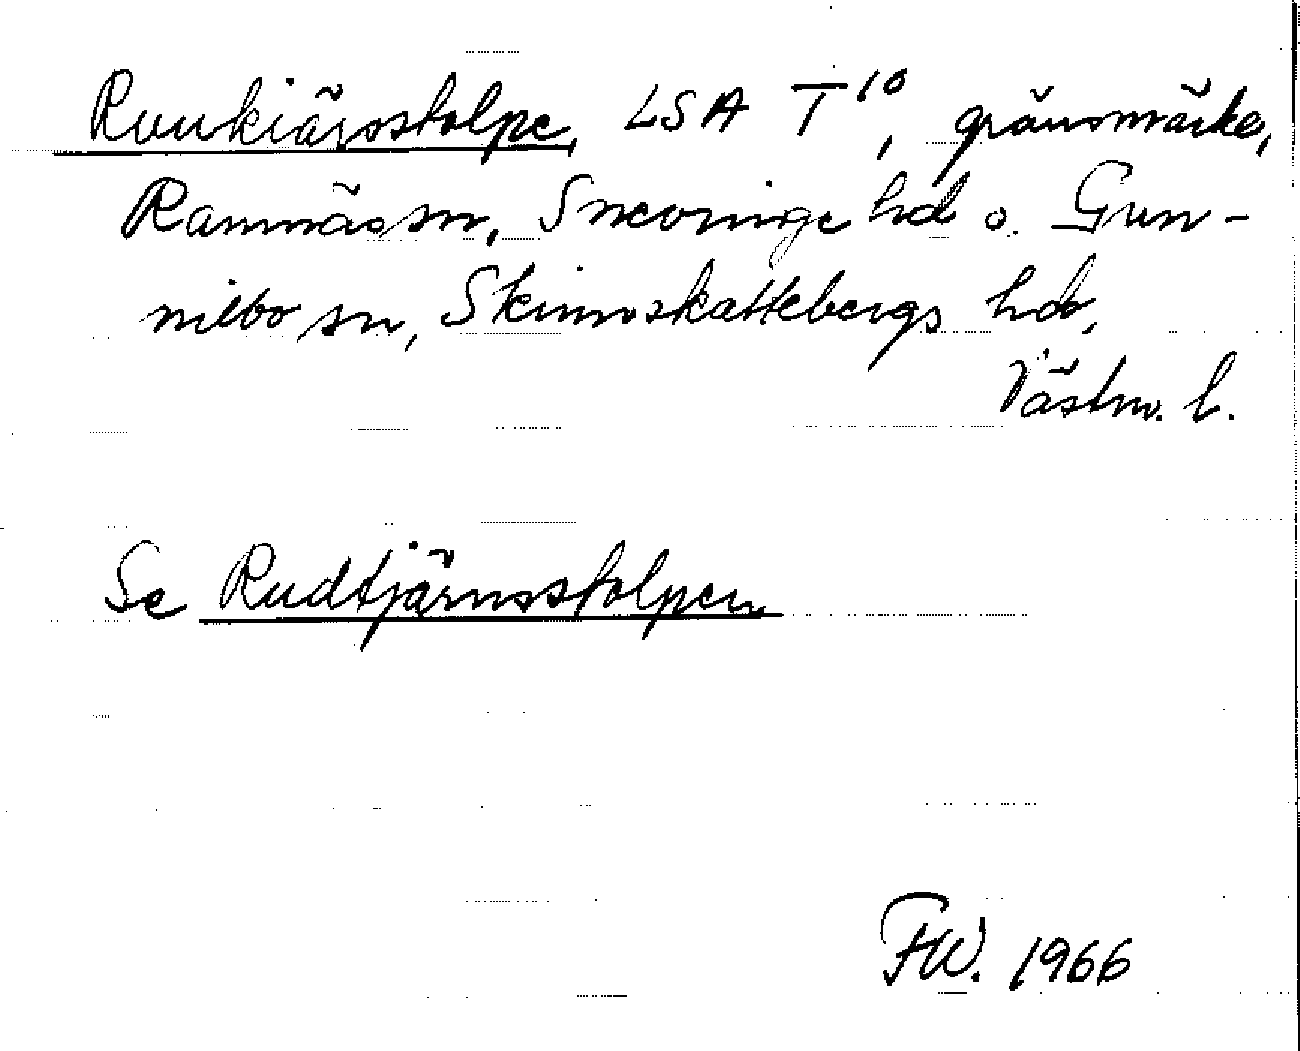 Ruukiärsstolpe, LSA T¹⁰, gränsmärke,
Ramnäs sn, Snevringe hd o. Gun-
nilbo sn, Skinnskattebergs hd,
Västm. l.
Se Rudtjärnsstolpen
FW. 1966